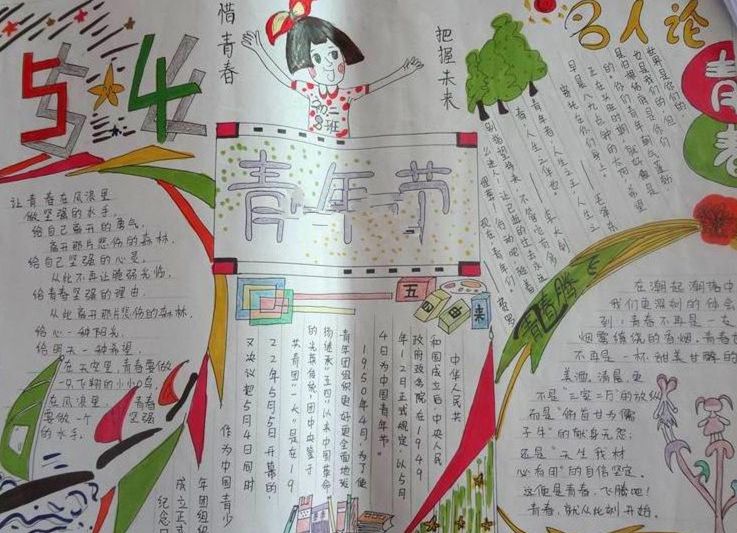 5.4
惜青春
把握未来
名人论
青春
初二
8班
青年节
让青春在风浪里
做坚强的水手,
给自己离开的勇气,
离开那片悲伤的森林,
给自己坚强的心是,
从此不再让脆弱光临,
给青春坚强的理由
从此离开那片悲伤的森林,
给心一种阳光,
给明天一种希望,
在天空里,青春要做
一只飞翔的小小鸟,
在风浪里,青春
要做一个坚强
的水手。
五四
中华人民共
和国成立后中央人民
政府政务院在1949
年12月正式规定,以5月
4日为中国青年节。
1950年4月,为了使
青年团组织更好更全面地发
扬继承"五四"以来中国革命
的光荣传统,团中央鉴于
共青团"一大"是在19
22年5月5日开幕的,
又决议把5月4日同时
作为中国青少
年团组织
成立正式
纪念日
世界是你们的
也是我们的,但
是归根结底是你们
的。你们青年朝气蓬勃
正在兴旺时期,就好像是
早晨八九点钟的太阳。希望
寄托在你们身上。
毛泽东
青春腾飞
在潮起潮落中
我们更深刻的体会
到:青春不再是一支
烟雾缭绕的香烟,青春也
不再是一杯甜美甘醇的
美酒,清晨,更
不是"三室二厅"的放纵
而是"俯首甘为孺
子牛"的献身无怨;
还是"天生我材
必有用"的自信坚定。
这便是青春,飞腾吧!
青春,就从此刻开始。